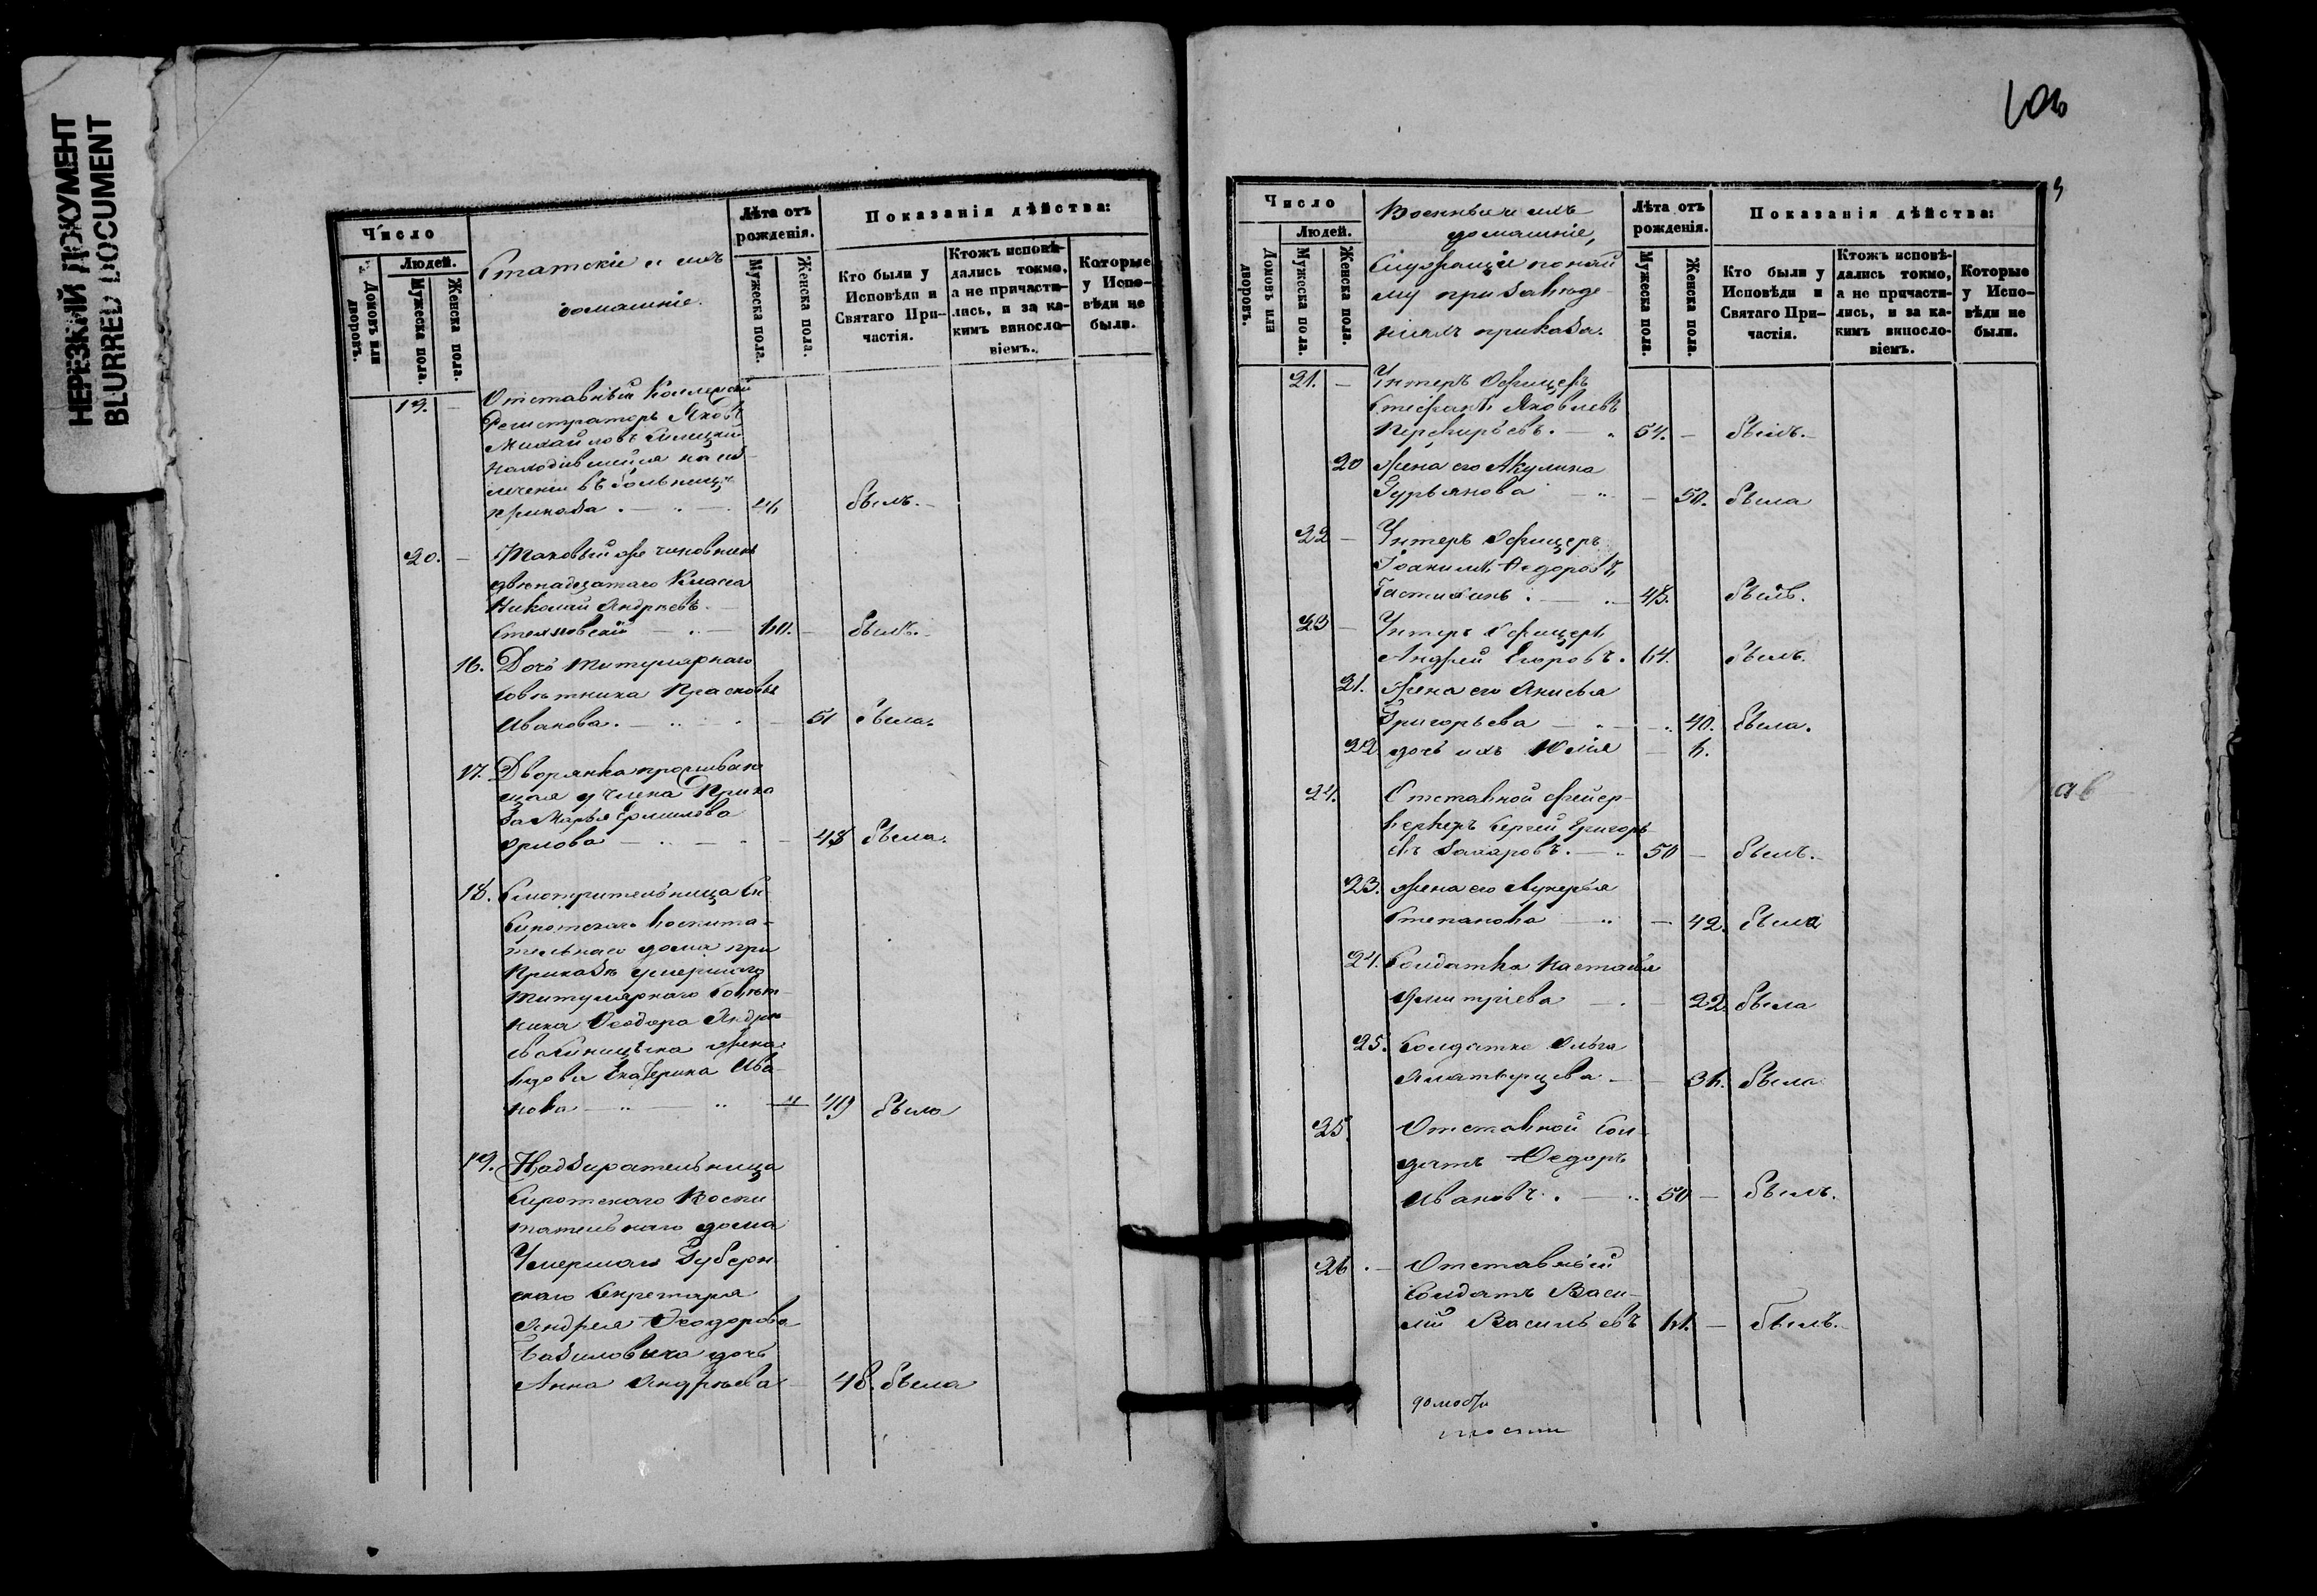 НЕРЕЗКИЙ ДОКУМЕНТ
BLURRED DOCUMENT
Число
Людей.
Домовъ или дворовъ.
Мужеска пола.
Женска пола.
Статскіе и ихъ
домашніе.
Лѣта отъ рожденія.
Мужеска пола.
Женска пола.
Показанія дѣйства:
Кто были у Исповѣди и Святаго Причастія.
Ктожъ исповѣдались токмо, а не причастились, и за какимъ винословіемъ.
Которые у Исповѣди не были.
19. — Отставный Коллежскій
Регистраторъ Яковъ
Михайловъ
находившейся на из
леченіи въ больницѣ
приказа . — . — 46 былъ. —
20. — Таковый же чиновникъ
двѣнадцатаго Класса
Николай Андреевъ. —
— 60. — былъ. —
16. Дочь Титулярнаго
совѣтника Прасковья
Иванова. — 51 была.
17. Дворянка проживаю
щая у члена Прика
за Марья Ермилова
Орлова — 48 была.
18. Смотрительница Си
Сиротскаго воспита-
тельнаго дома при
Приказѣ умершаго
Титулярнаго Совѣт-
ника Ѳеодора Андре
жена
вдова Екатерина Ива-
нова — 49 была
19. Надзирательница
Сиротскаго Воспи
тательнаго дома
Умершаго Губерн
скаго Секретаря
Андрея Ѳеодорова
дочь
Анна Андрѣева — 48. была
106
Число
Людей.
Домовъ или дворовъ.
Мужеска пола.
Женска пола.
Военные и ихъ
домашніе,
Служащіе по най
му при заведе-
ніяхъ приказа.
Лѣта отъ рожденія.
Мужеска пола.
Женска пола.
Показанія дѣйства:
Кто были у Исповѣди и Святаго Причастія.
Ктожъ исповѣдались токмо, а не причастились, и за какимъ винословіемъ.
Которые у Исповѣди не были.
21. — Унтеръ Офицеръ
Стефанъ Яковлевъ
Перфирьевъ. — 54. — былъ. —
20 Жена его Акулина
Гурьянова — 50. была
22 — Унтеръ Офицеръ
Іоакимъ Ѳедоровъ
— 48. былъ.
23 — Унтеръ Офицеръ
Андрей Егоровъ. 64. былъ.
21. Жена его Анисья
Григорьева — 40. была.
22 дочь ихъ Юлія — 6.
24. Отставной фейер-
веркеръ Сергей Григорь-
евъ Захаровъ. — 50 — былъ. —
23. Жена его Лукерья
Степанова — 42. была
24. Солдатка Настасья
Дмитріева — 22. была
25. Солдатка Ольга
— 36. была
25. Отставной Сол-
датъ Ѳедоръ
Ивановъ. — 50 — былъ.
26 . — Отставный
Солдатъ Васи-
лій Васильевъ 61. — былъ. —